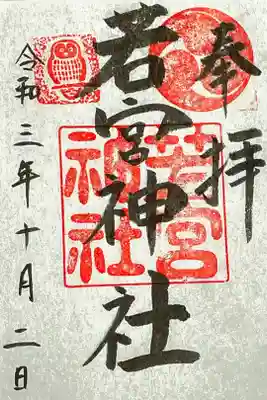 奉拝
若宮神社
若宮
神社
令和三年十月二日